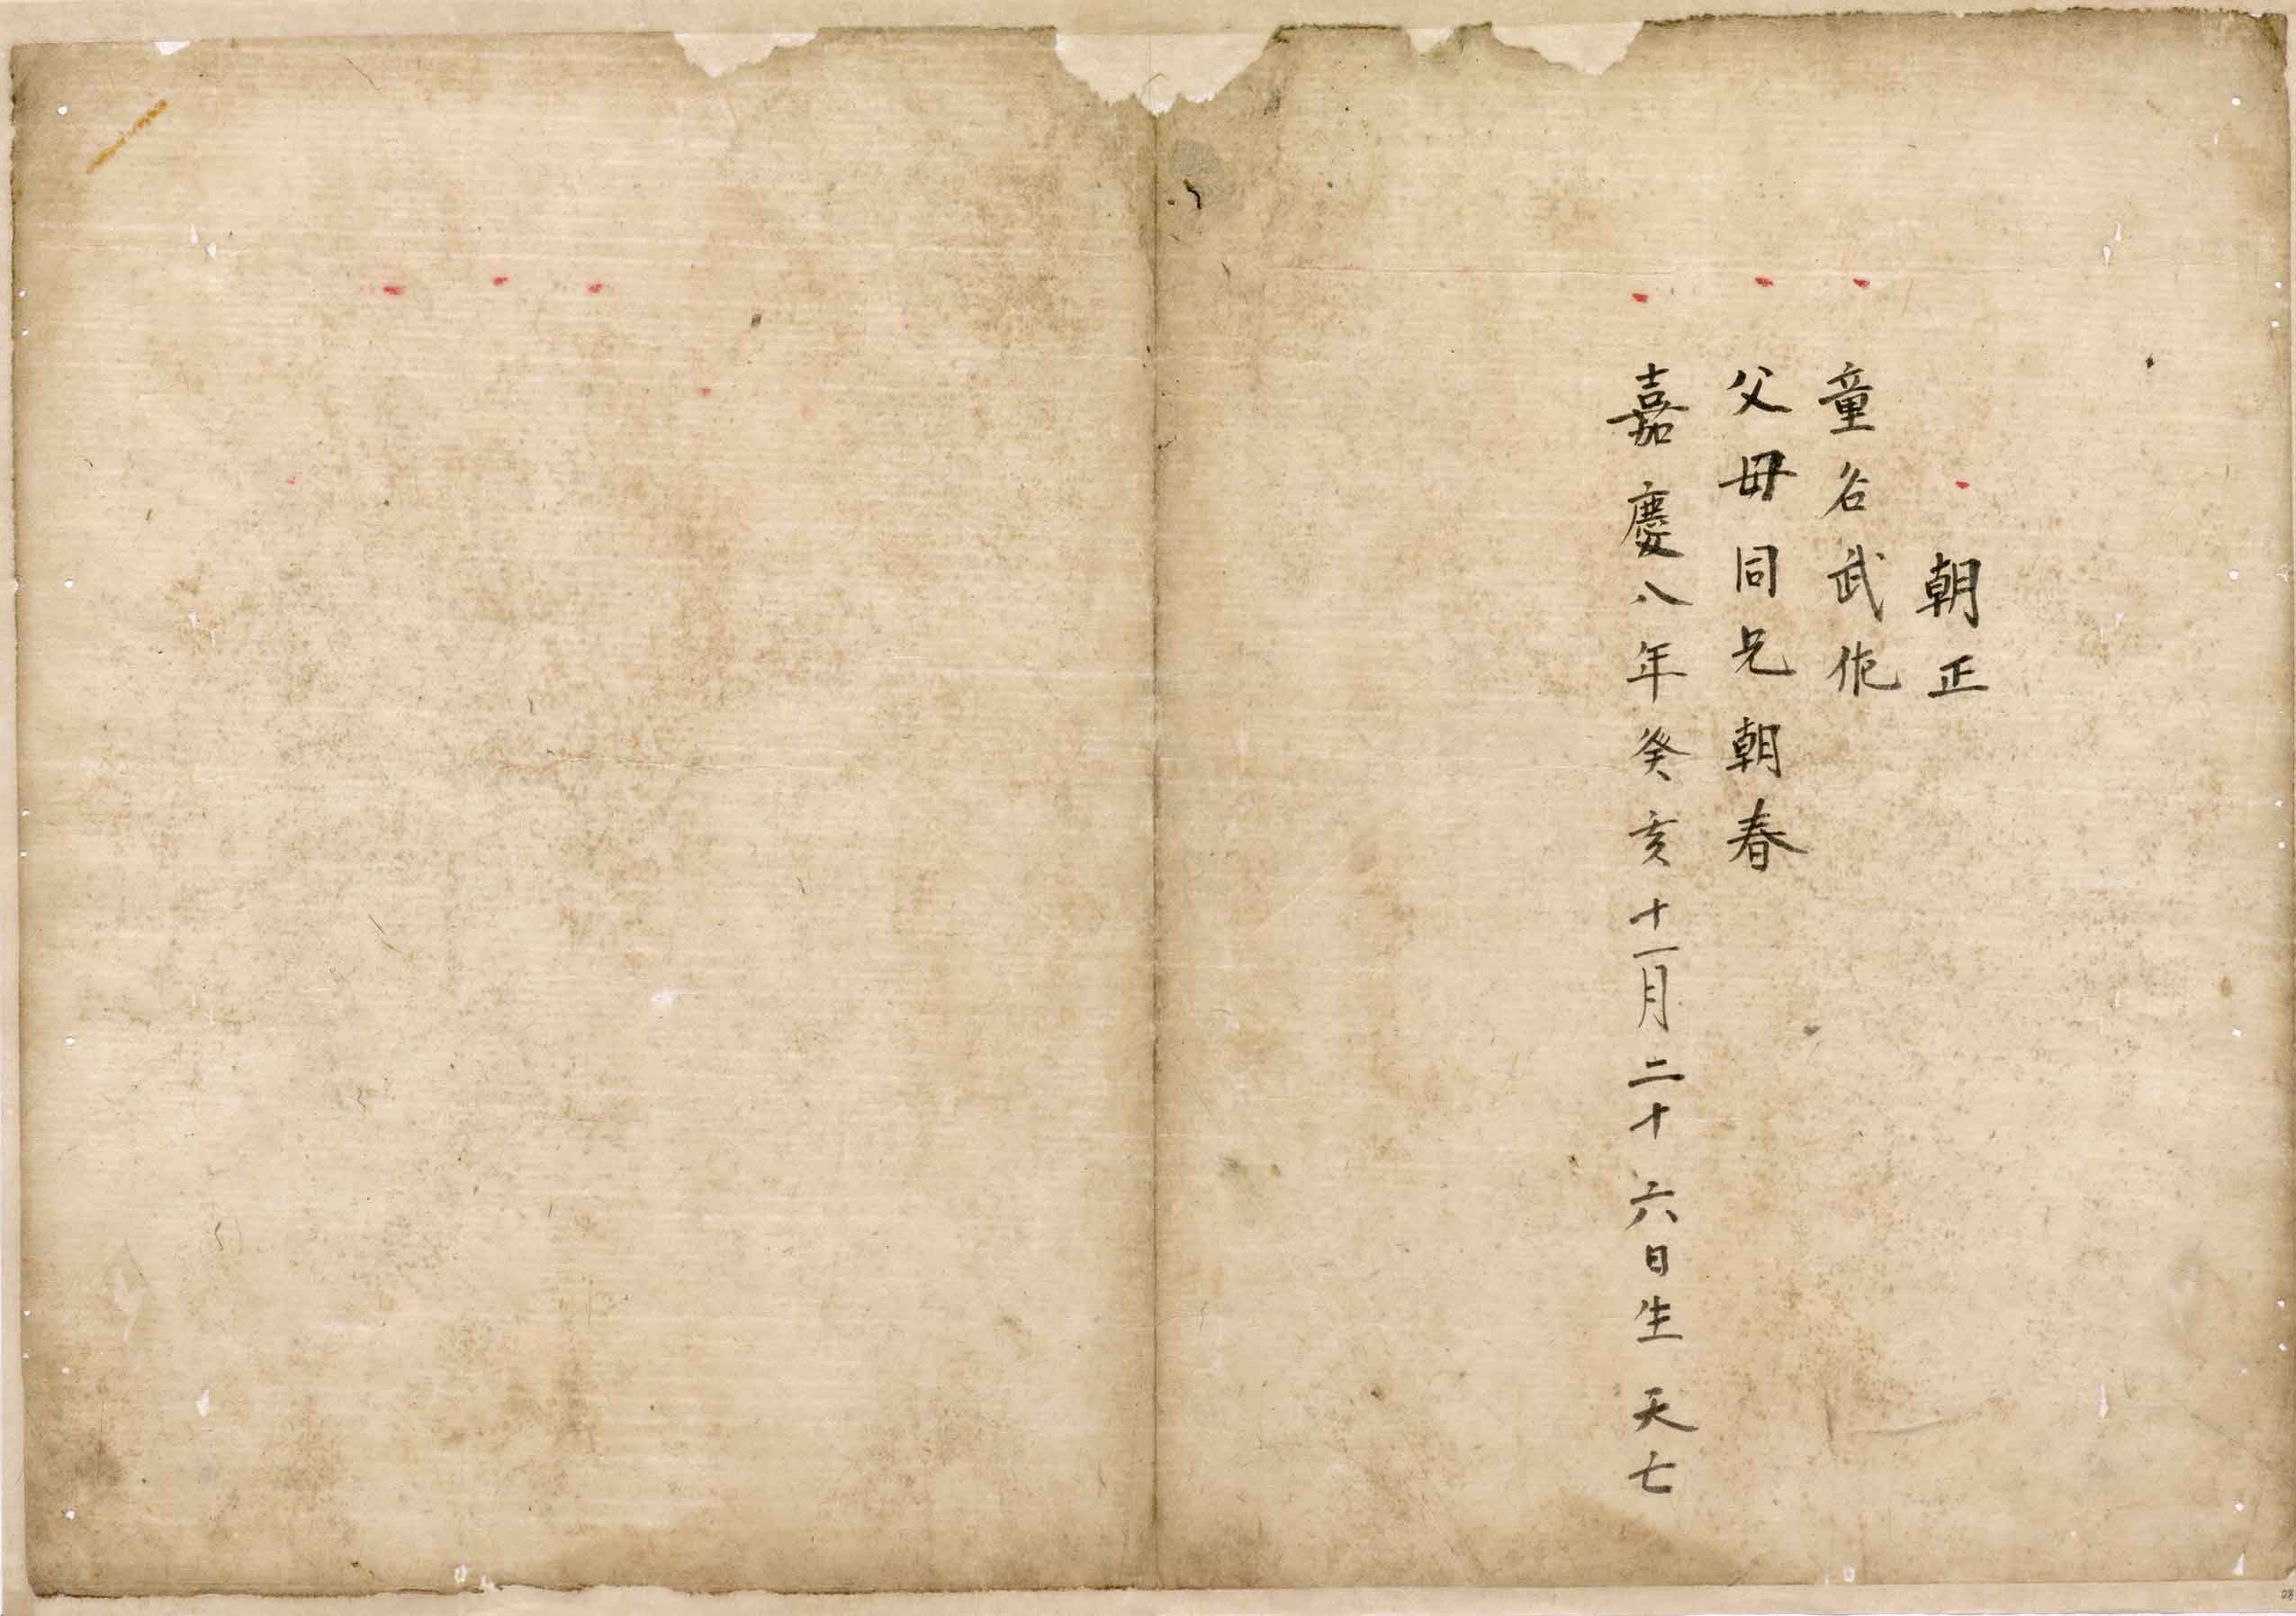 朝正
童名武佗
父母同兄朝春
嘉慶八年癸亥十一月二十六日生夭亡
28